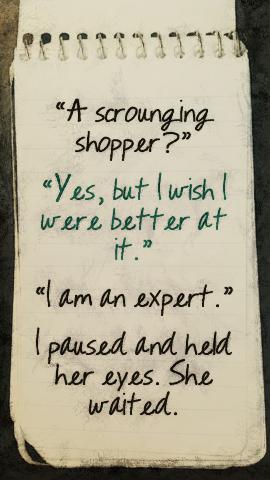 “A scrounging
shopper?”
“Yes, but I wish I
were better at
it.”
“I am an expert.”
I paused and held
her eyes. She
waited.